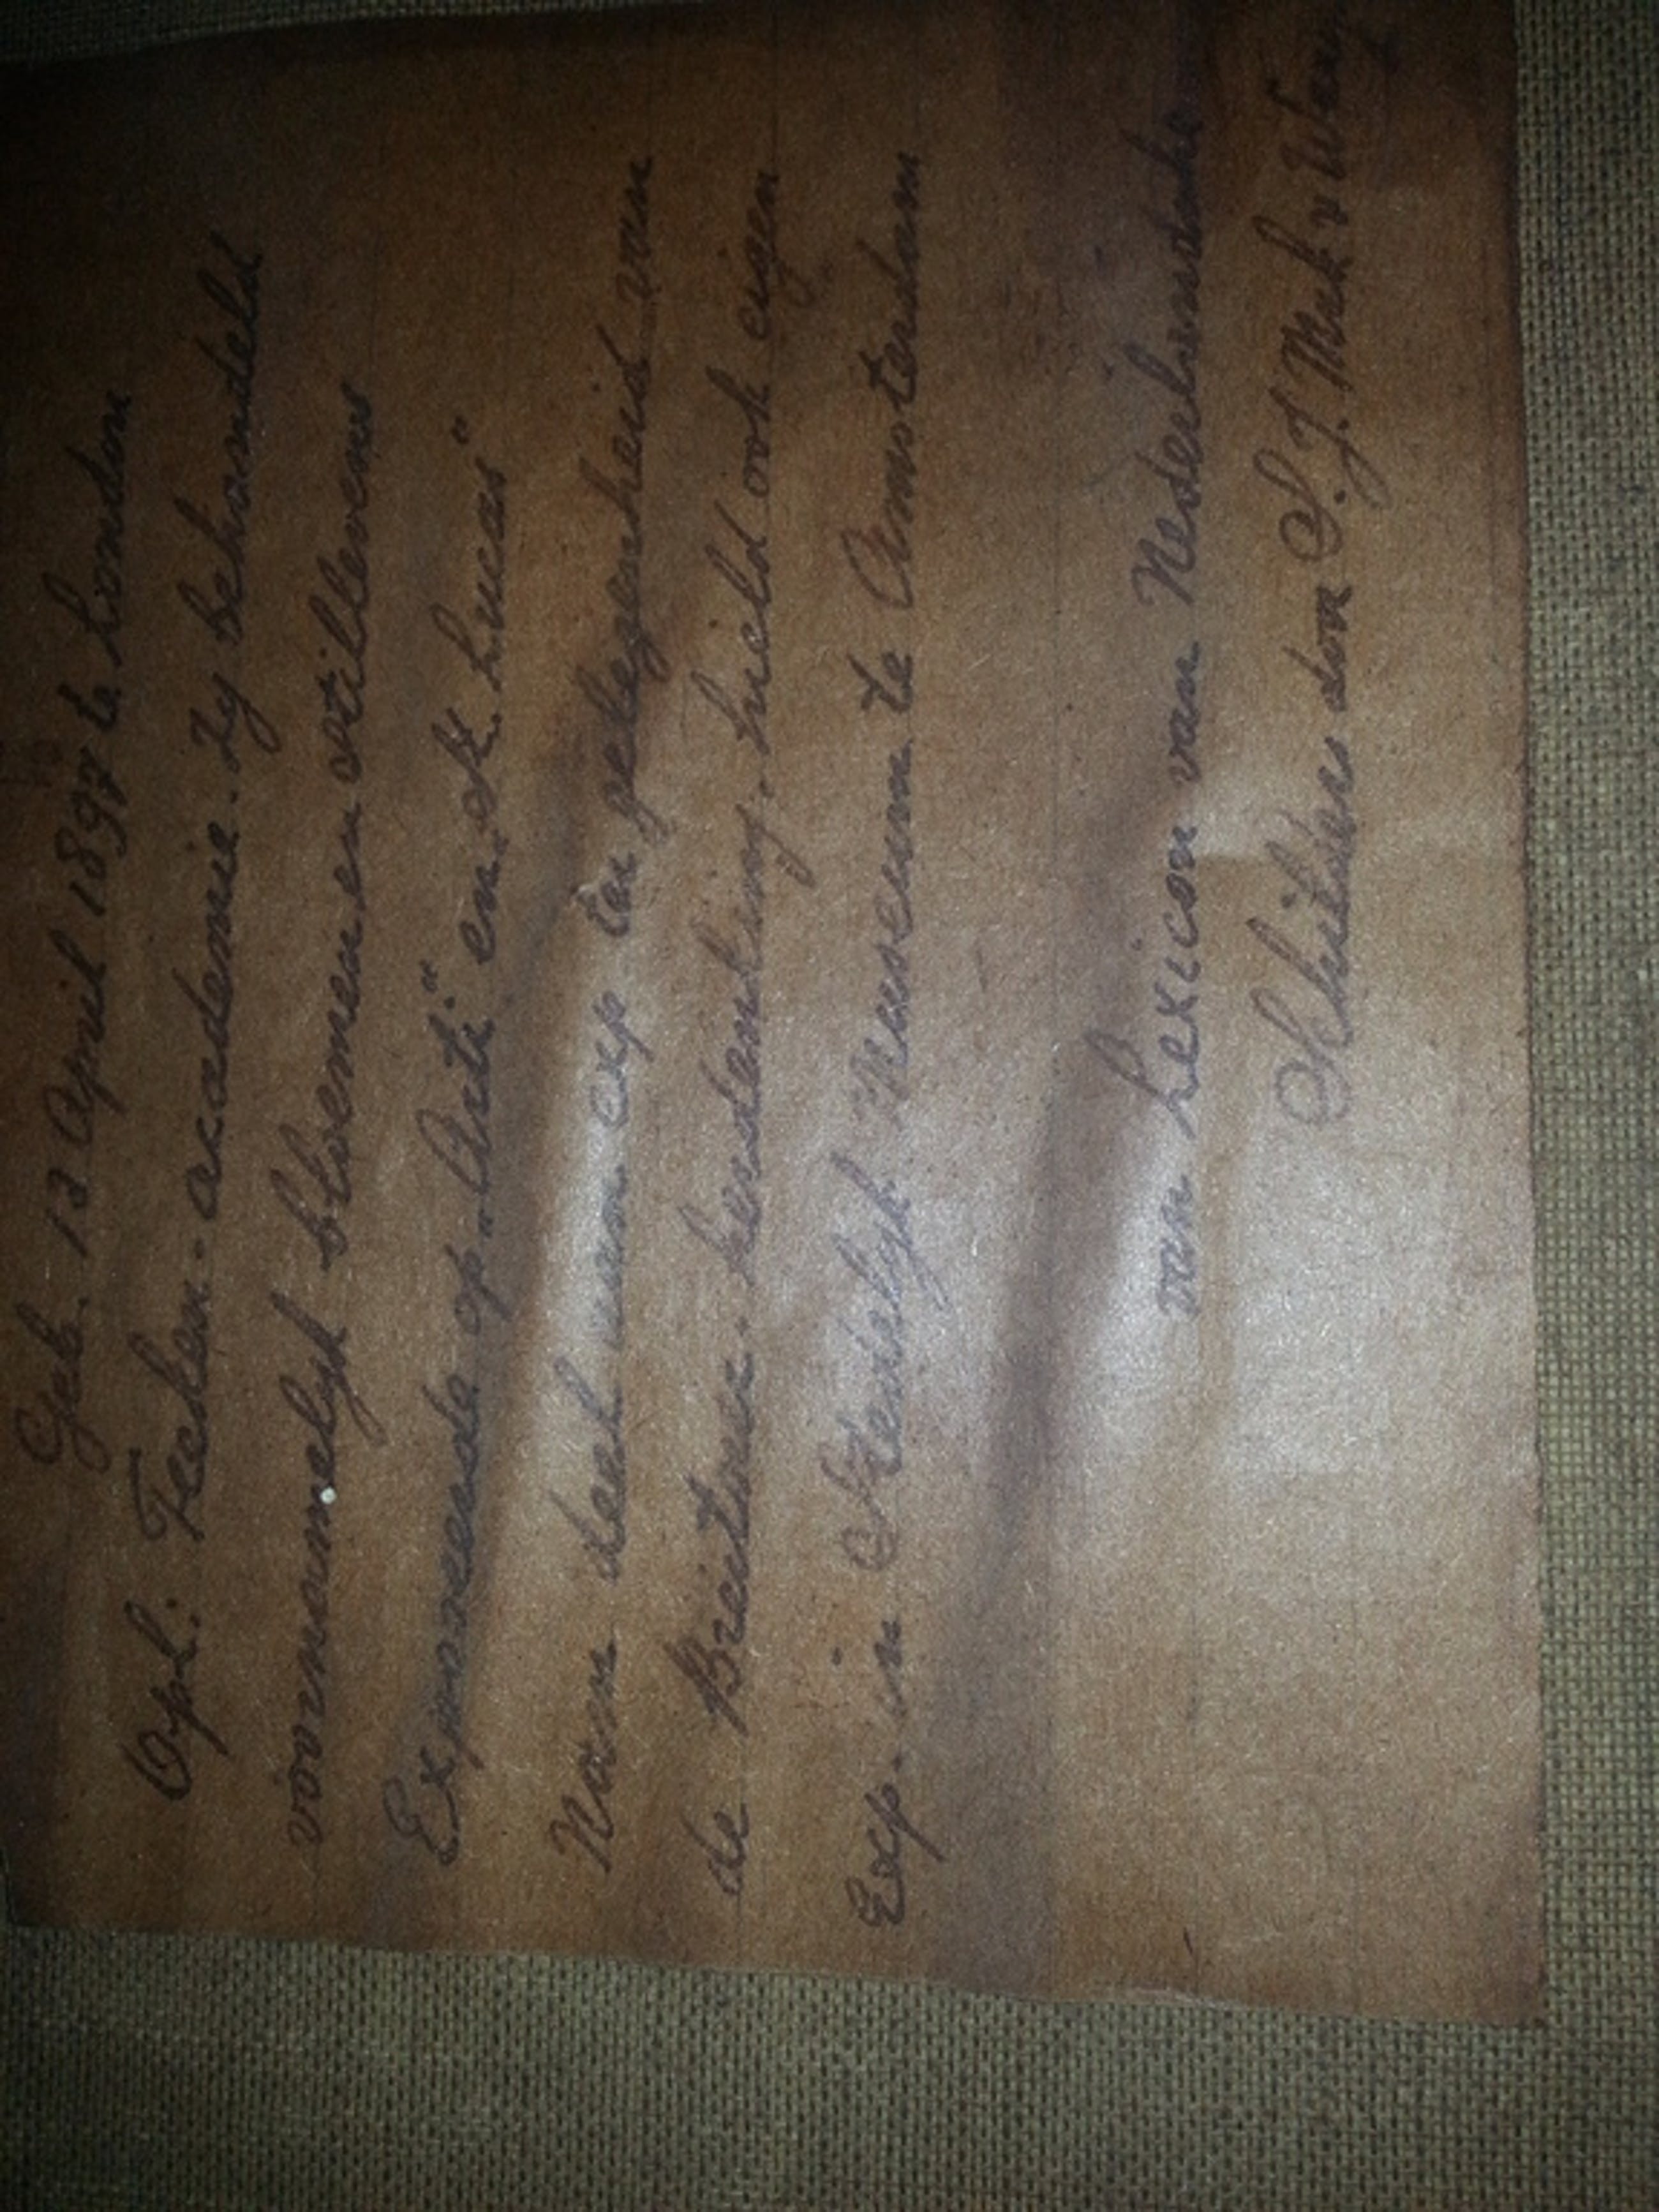 Geb. 13 April 1897 te London
Opl: Teeken-academie. Zy behandeld
voornamelyk bloemen en stillevens
Exposeerde op "Arti" en St. Lucas"
Nam deel aan exp ter gelegenheid van
de Britsche herdenking. hield ook eigen
Exp. in Stedelyk Museum te Amsterdam
van Lexicon van Nederlandsche
Schilders door S. J. Mak v Waay